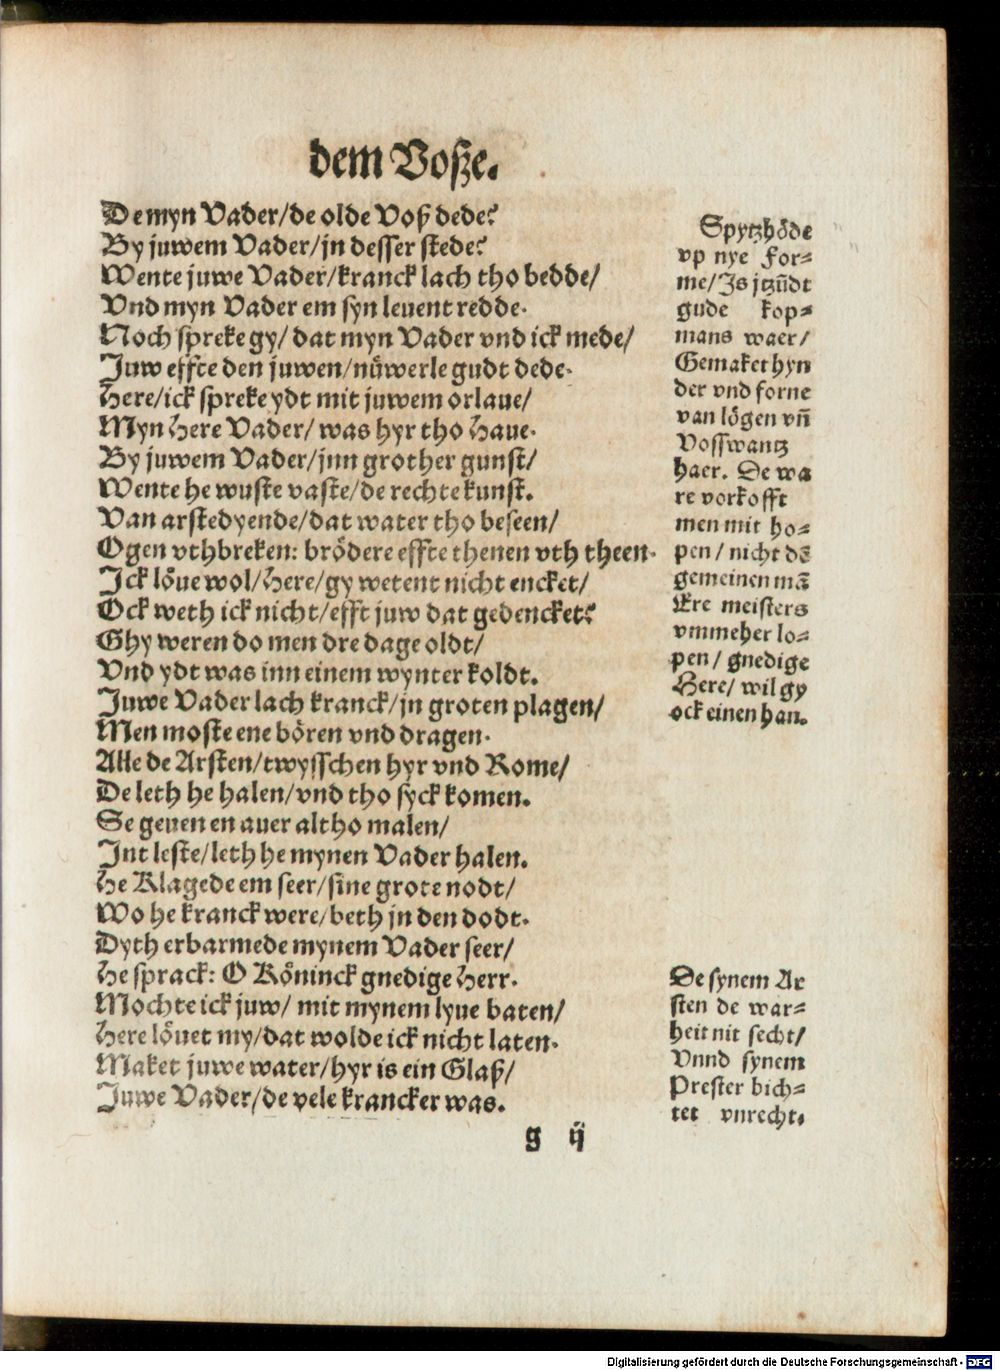 dem Voße.
De myn Vader/de olde Voß dede?
By juwem Vader/jn desser stede?
Wente juwe Vader/kranck lach tho bedde/
Vnd myn Vader em syn leuent redde.
Noch spreke gy/ dat myn Vader vnd ick mede/
Juw effte den juwen/nüwerle gudt dede.
Here/ick spreke ydt mit juwem orlaue/
Myn Here Vader/ was hyr tho Haue.
By juwem Vader/jnn grother gunst/
Wente he wuste vaste/de rechte kunst.
Van arstedyende/dat water tho beseen/
Ogen vthbreken: brödere effte thenen vth theen.
Jck löue wol/Here/gy wetent nicht encket/
Ock weth ick nicht/efft juw dat gedencket?
Ghy weren do men dre dage oldt/
Vnd ydt was inn einem wynter koldt.
Juwe Vader lach kranck/jn groten plagen/
Men moste ene bören vnd dragen.
Alle de Arsten/twysschen hyr vnd Rome/
De leth he halen/vnd tho syck komen.
Se geuen en auer altho malen/
Jnt leste/leth he mynen Vader halen.
He Klagede em seer/sine grote nodt/
Wo he kranck were/beth jn den dodt.
Dyth erbarmede mynem Vader seer/
He sprack: O Köninck gnedige Herr.
Mochte ick juw/ mit mynem lyue baten/
Here löuet my/dat wolde ick nicht laten.
Maket juwe water/hyr is ein Glaß/
Juwe Vader/de vele krancker was.
Spytzhöde
vp nye For=
me/Js jtzūdt
gude kop=
mans waer/
Gemaket hyn
der vnd forne
van lögen vñ
Vosswantz
haer. De wa
re vorkofft
men mit ho=
pen/ nicht dē
gemeinen mā
Ere meisters
vmmeher lo=
pen/ gnedige
Here/ wil gy
ock einen han.
De synem Ar
sten de war=
heit nit secht/
Vnnd synem
Prester bich=
tet vnrecht.
g ij
Digitalisierung gefördert durch die Deutsche Forschungsgemeinschaft - DFG